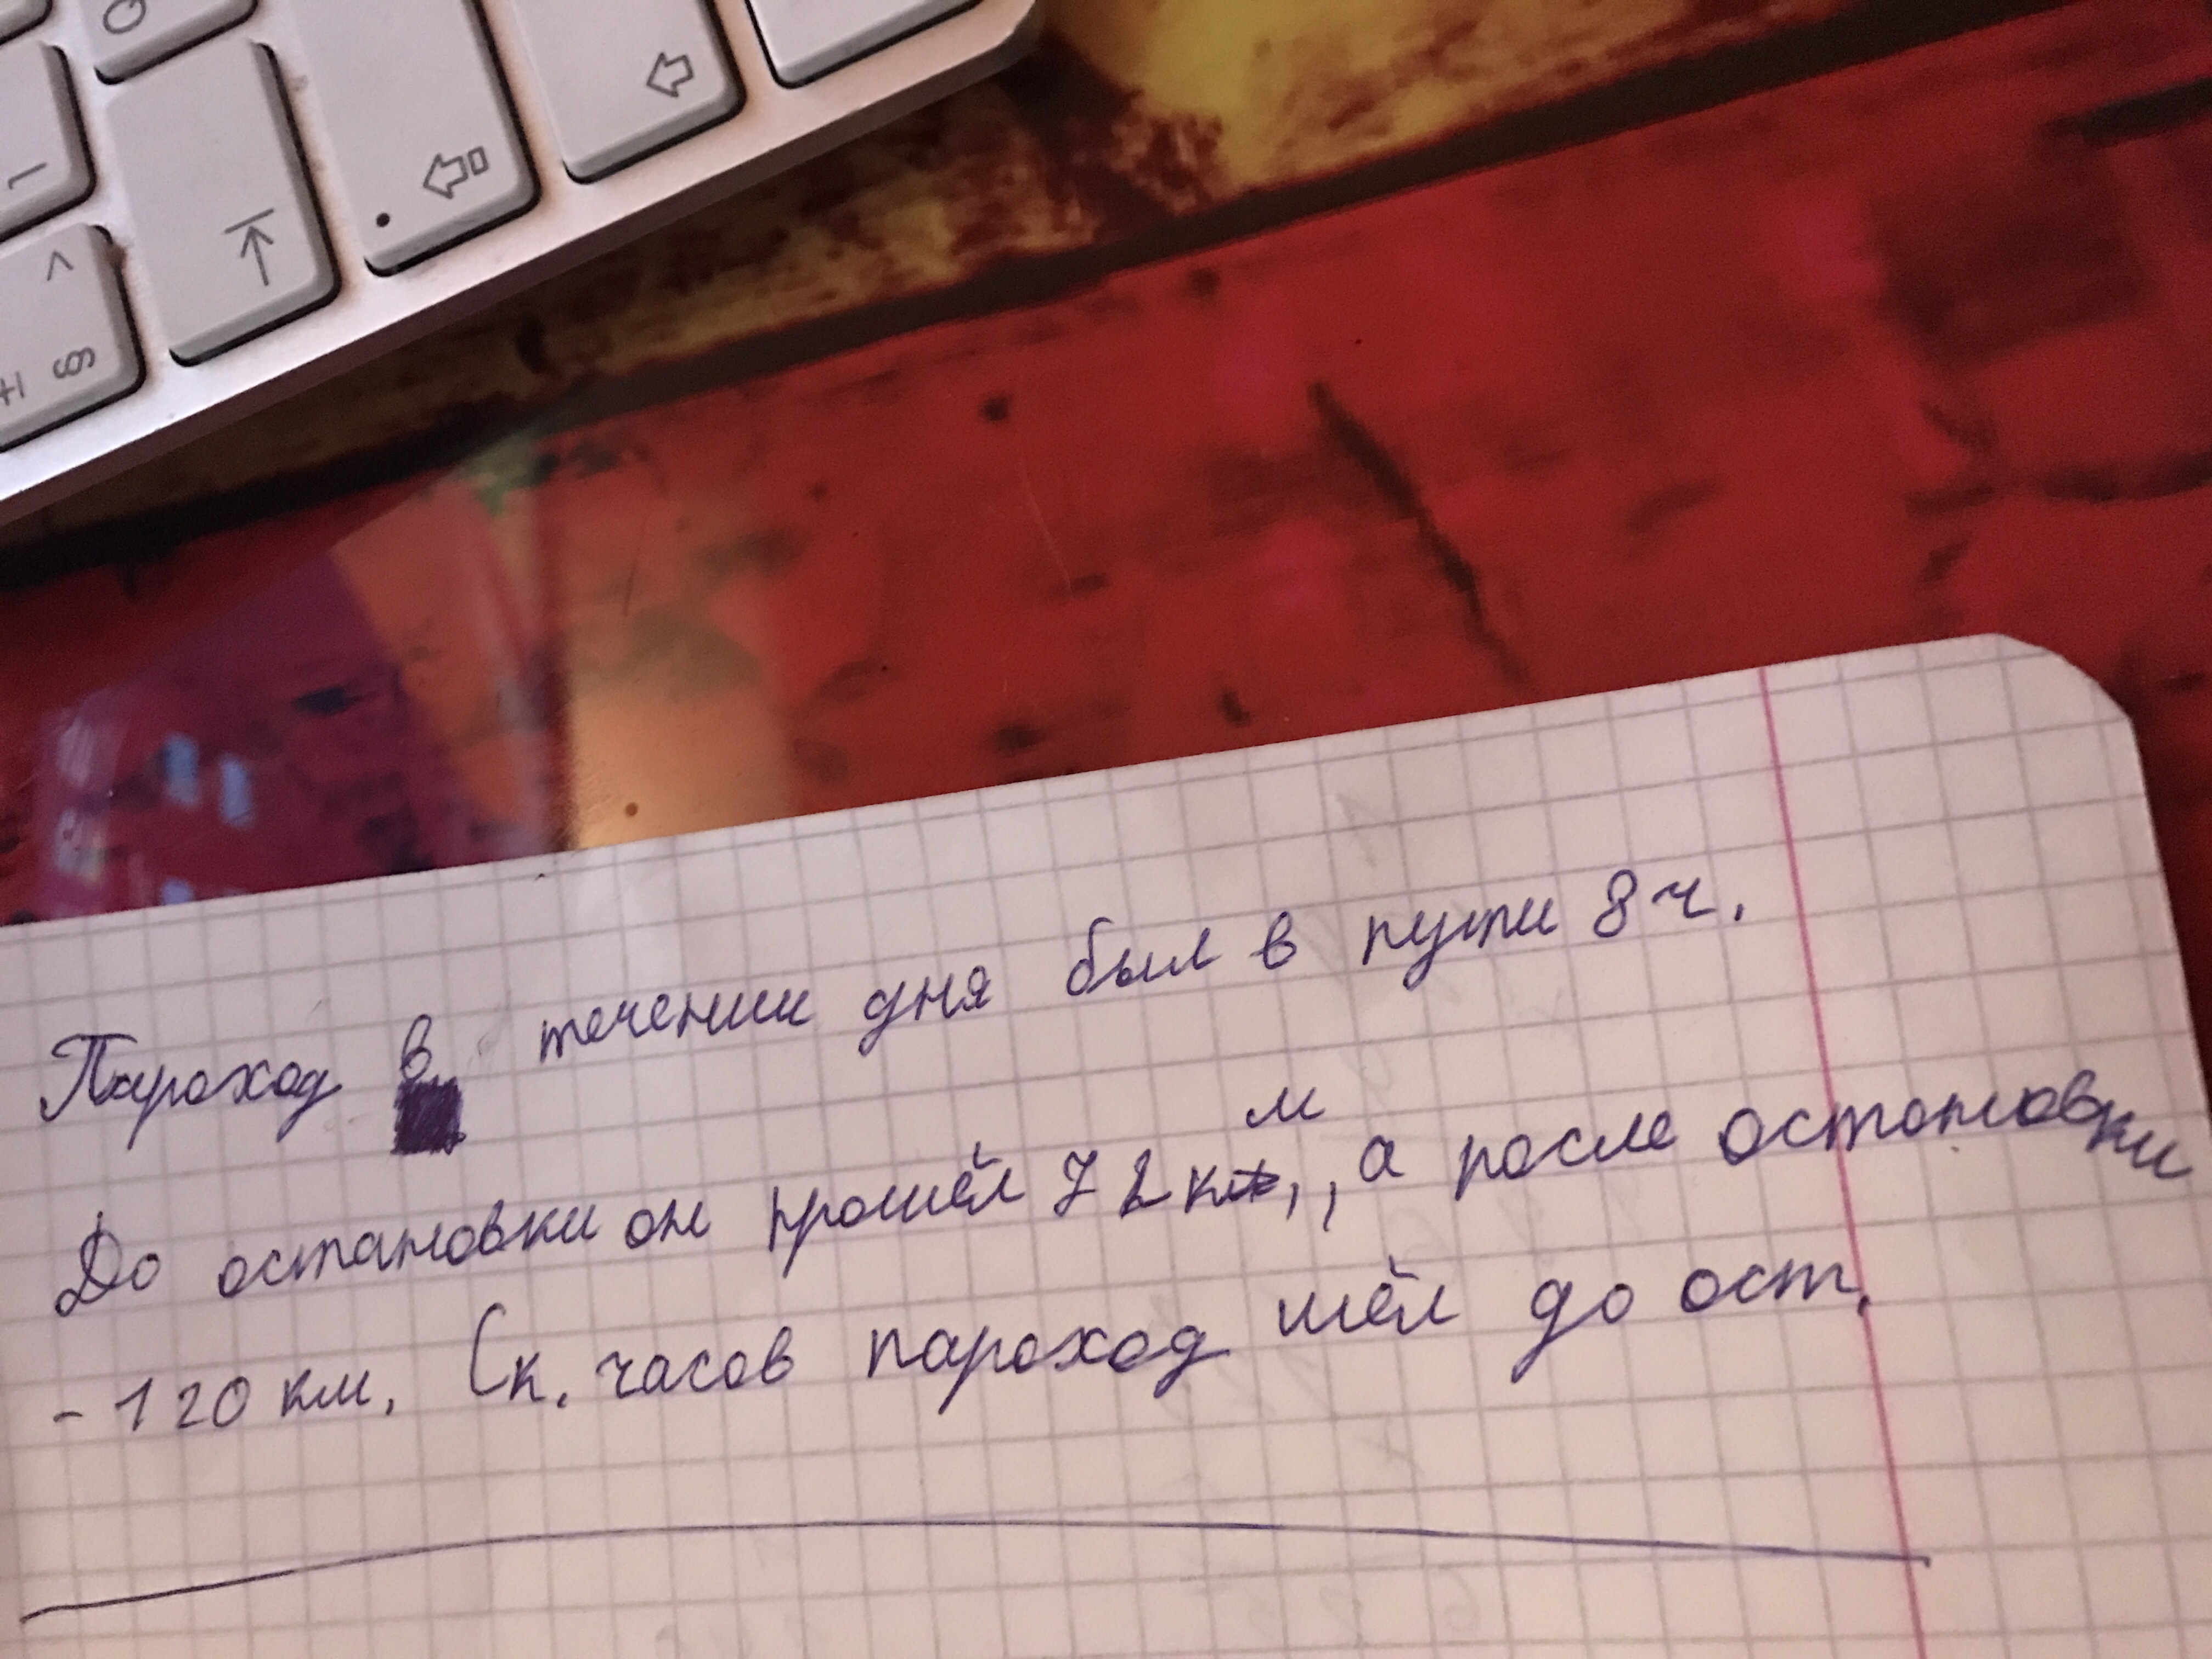 Пароход в течении дня был в пути 8 ч.
До остановки он прошёл 72 км, а после остоновки
- 120 км. Ск. часов пароход шёл до ост.